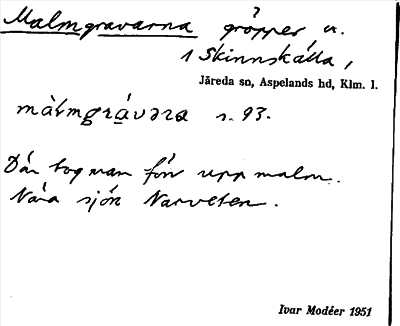 Malmgravarna gropper n.
1 Skinnskälla,
Järeda sn, Aspelands hd, Klm. l.
màlmgrá̱vəra s. 93.
Där tog man förr upp malm.
Nära sjön Narveten.
Ivar Modéer 1951